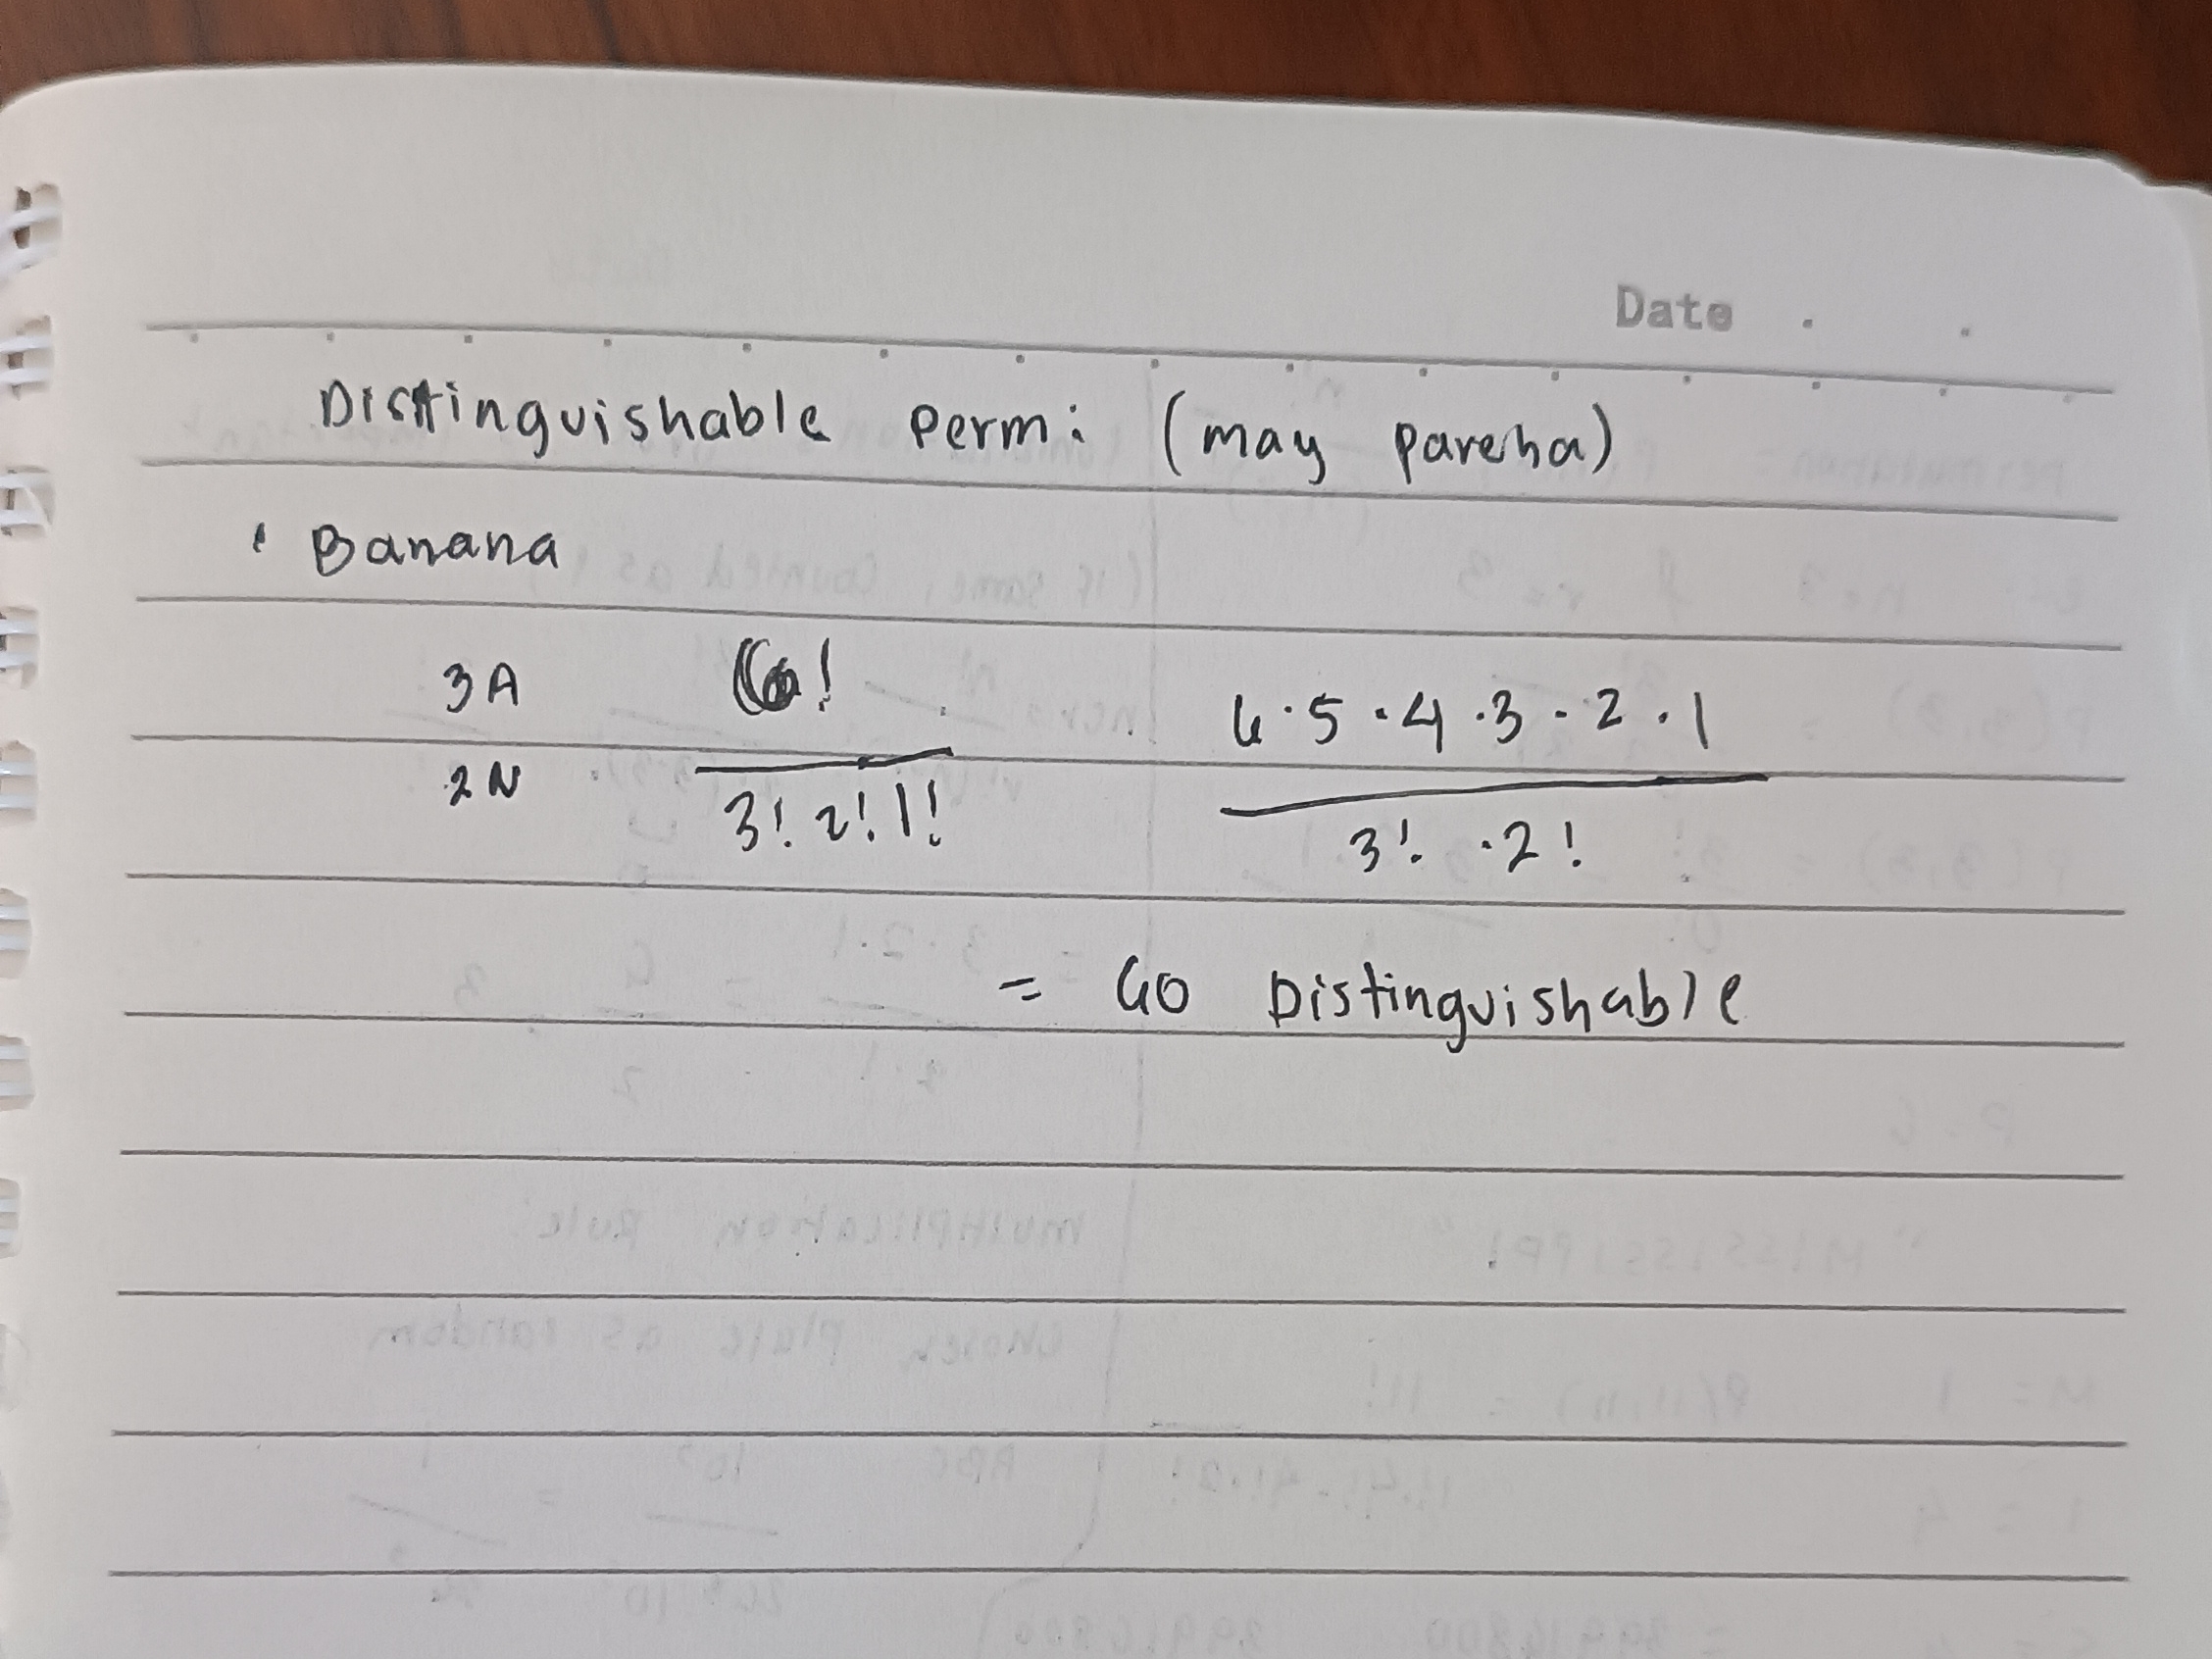 Date . .
Distinguishable perm: (may pareha)
• Banana
3A 6! 6·5·4·3·2·1
2N 3! 2! 1! 3! ·2!
= 60 Distinguishable